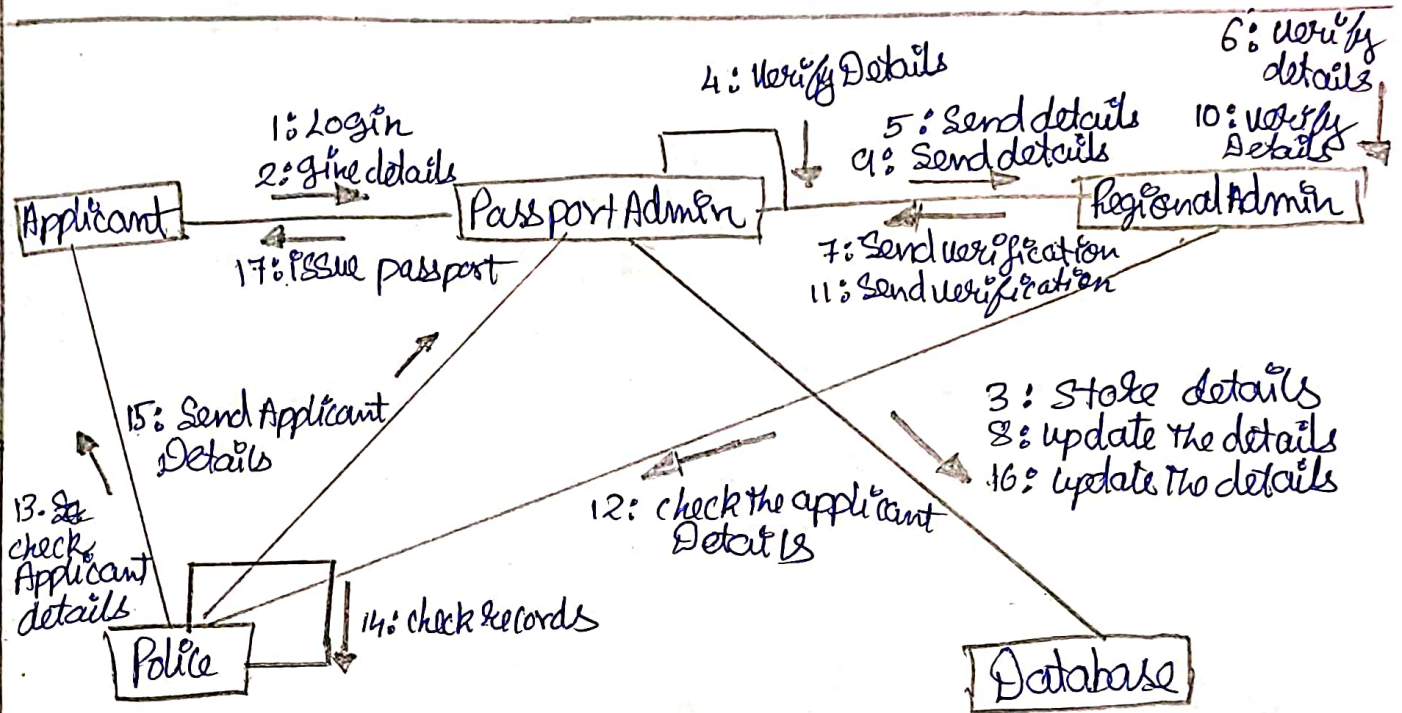 6: verify
details
4: Verify Details
5: Send details
10: verify
Details
9: Send details
1: Login
2: give details
Applicant
Passport Admin
Regional Admin
17: issue passport
7: Send verification
11: Send verification
15: Send Applicant
Details
3: Store details
8: update the details
16: update the details
12: check the applicant
Details
13.
check
Applicant
details
14: check records
Police
Database